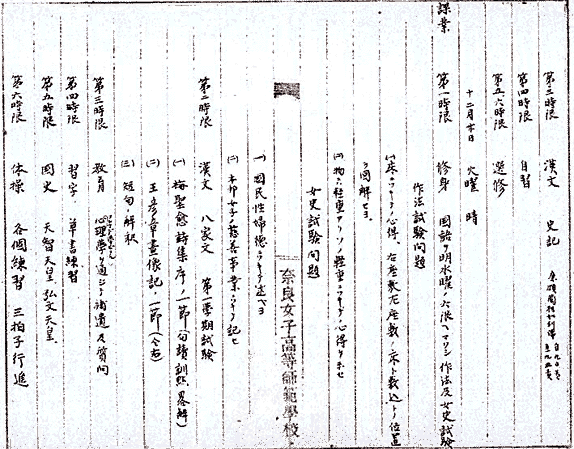 第三時限 漢文 史記
第四時限 自習
第五六時限 選修
十二月 日 火曜 晴
課業
第一時限 修身 国語ノ明水曜ノ六限ヘマワリシ 作法及女史試験
作法試験問題
(一)床ニツキテノ心得、右座敷左座敷ノ床ト敷込トノ位置
ヲ図解セヨ
(二)物ニ軽重アリソノ軽重ニツキテノ心得ヲ示セ
女史試験問題
奈良女子高等師範學校
(一)国民性婦徳ニツキテ述ベヨ
(二)本邦女子慈善事業ニツキテ記セ
第二時限 漢文 八家文 第一学期試験
(一)梅聖愈詩集序ノ一節(句讀訓点畧解)
(二)王彦章畫像記ノ一節(仝右)
(三)短句ノ解釈
第三時限 教育 心理学ヲ通ジテ補遺及質問
第四時限 習字 草書練習
第五時限 国史 天智天皇、弘文天皇
第六時限 体操 各個練習 三拍子行進